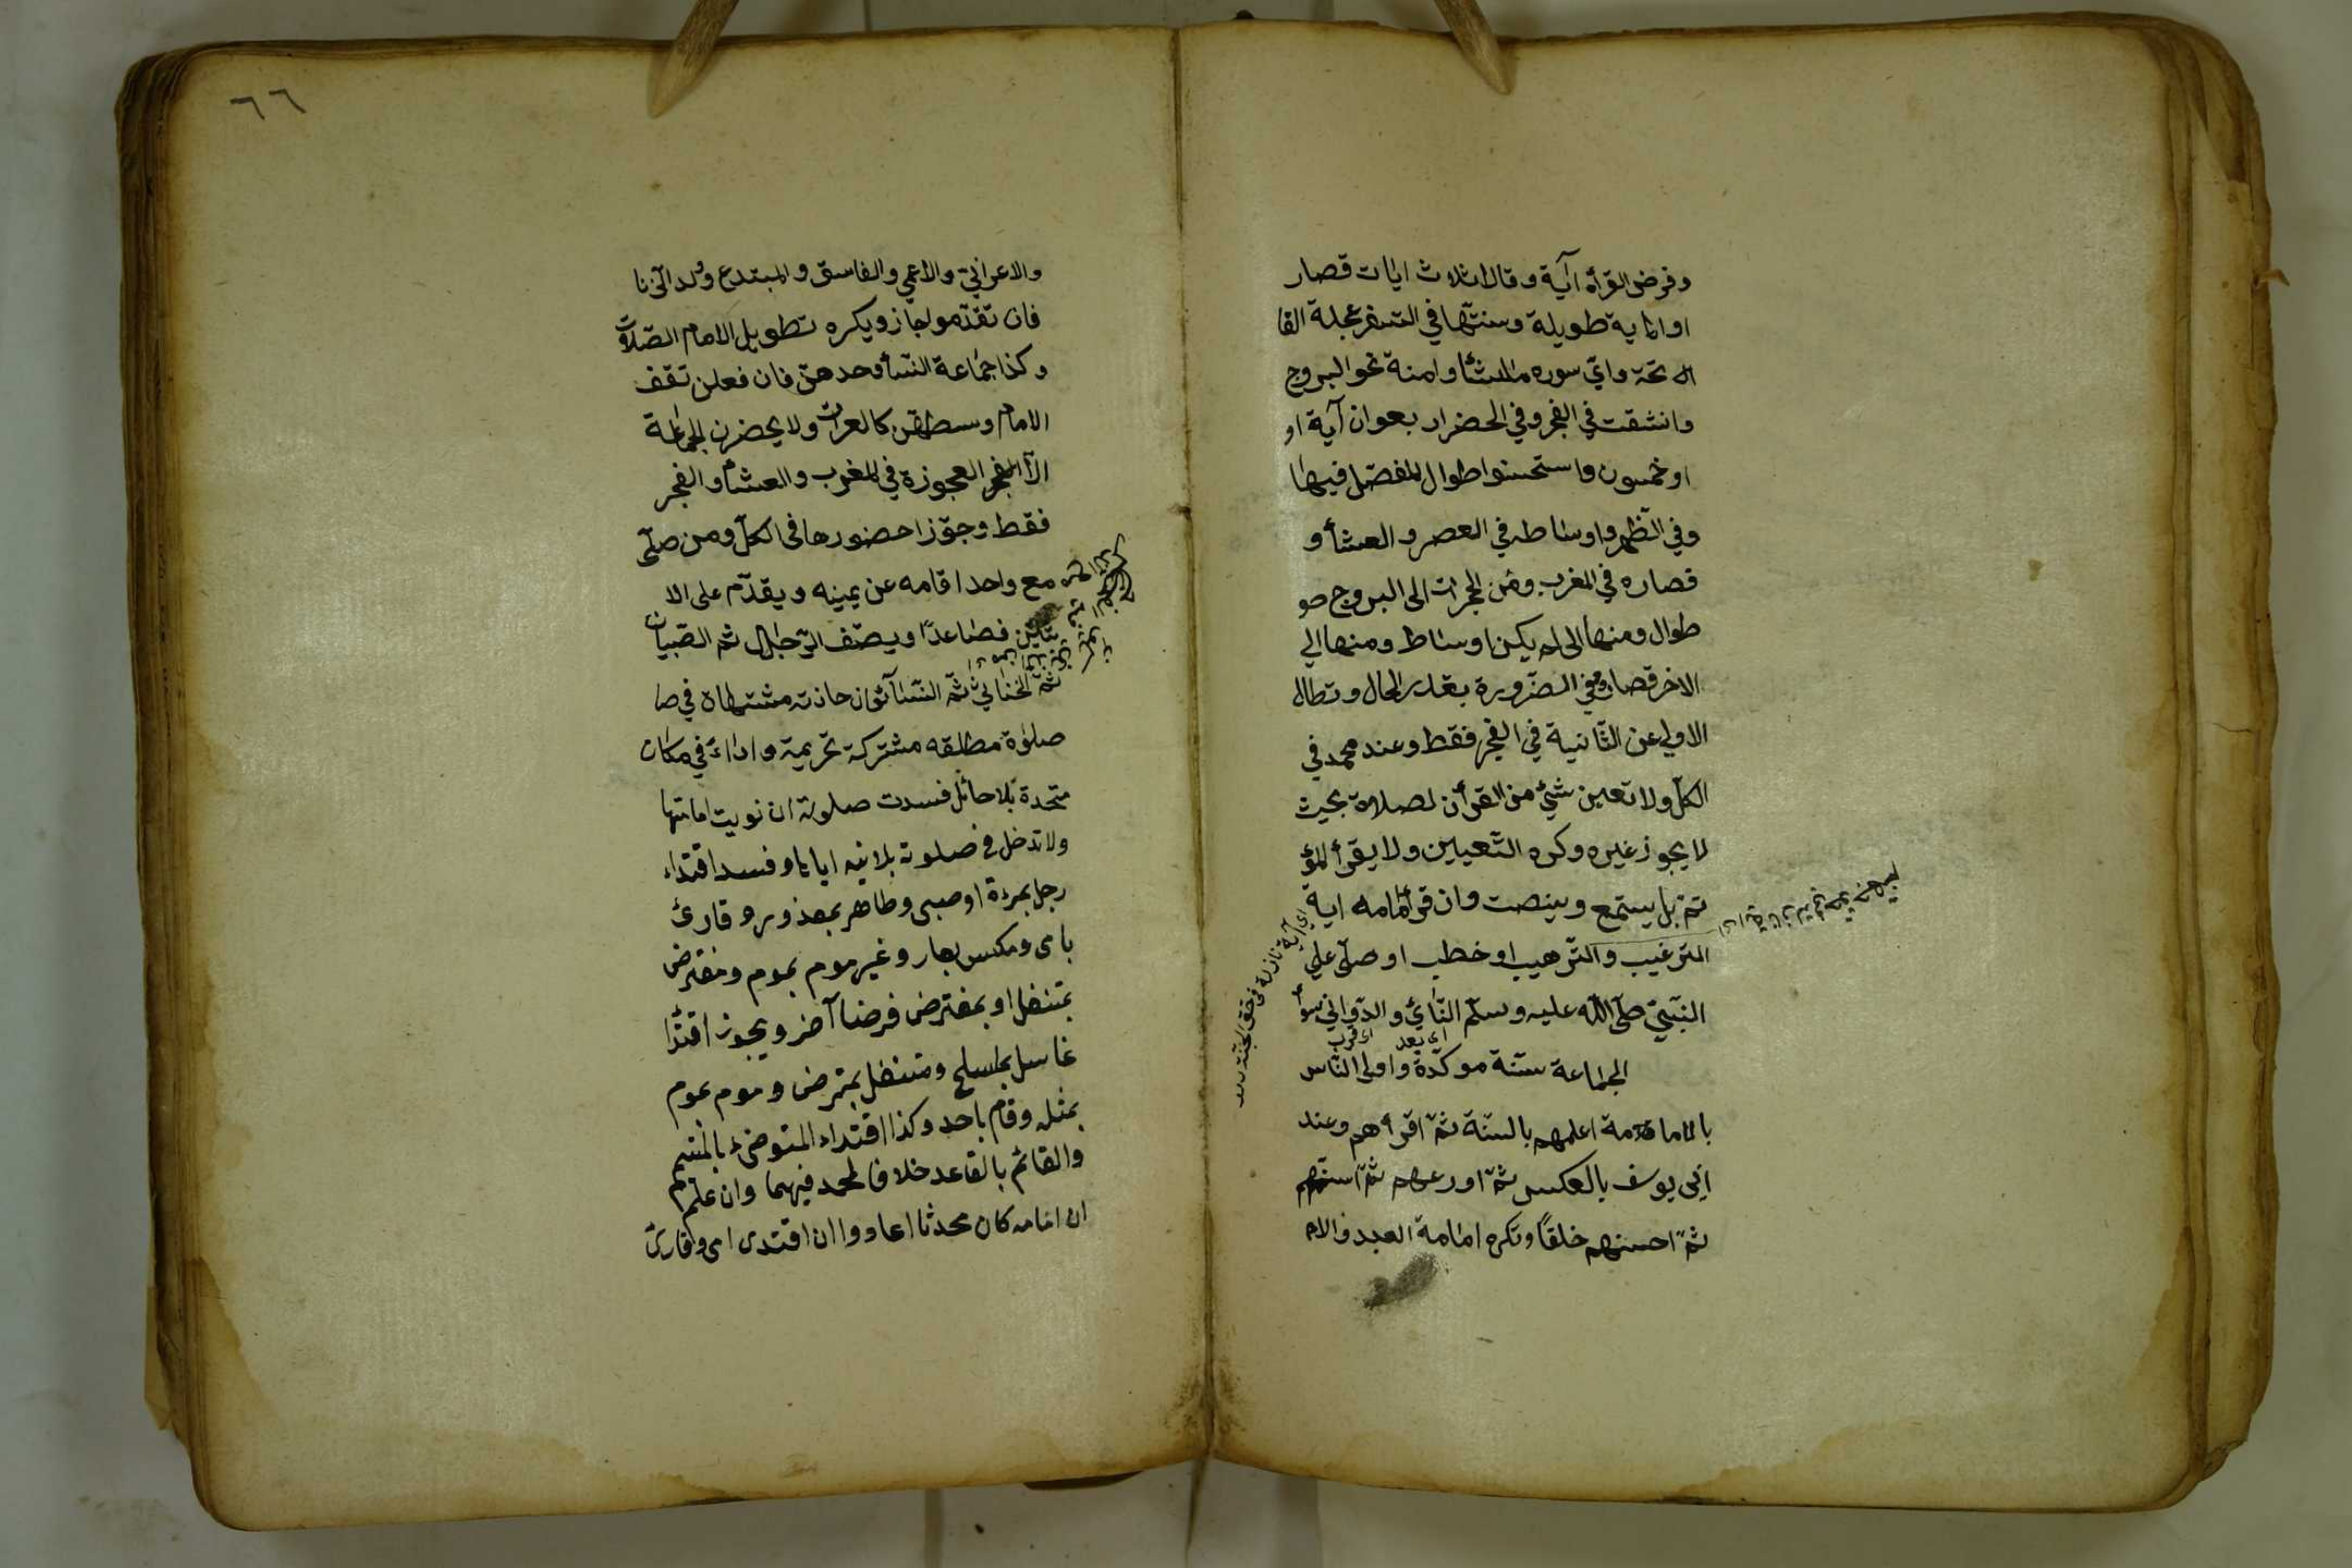 وفرض القرأة آية وقالا ثلاث ايات قصار
او اية طويلة وسنتها في السفر عجلة الفا
الفاتحة واي سورة ماشأ وامنة نحو البروج
وانشقت في الفجر وفي الحضر اربعون آية او
او خمسون واستحسنوا طوال المفصل فيها
وفي الظهر واوساطه في العصر والعشأ و
قصاره في المغرب ومن الحجرات الى البروج
طوال ومنها الى لم يكن اوساط ومنها الي
الاخر قصار وفي الضرورة بقدر الحال وتطال
الاولي عن الثانية في الفجر فقط وعند محمد في
الكل ولا تعين شئ من القرأن لصلاة بحيث
لا يجوز غيره وكره التعيين ولا يقرأ المؤ
تم بل يستمع وينصت وان قرأ امامه اية
الترغيب والترهيب او خطب او صلى علي
النبي صلى الله عليه وسلم النائي والدواني سوأ
اي بعد اي قرب
الجماعة سنة موكدة واولى الناس
بالامامة اعلمهم بالسنة ثم اقرأهم وعند
ابي يوسف بالعكس ثم اورعهم ثم اسنهم
ثم احسنهم خلقا وتكره امامة العبد والا
اي آية نازلة في حق الجنة
٦٦
والاعرابي والاعمي والفاسق والمبتدع وولد الزنا
فان تقدموا جاز ويكره تطويل الامام الصلات
وكذا جماعة النسأ وحدهن فان فعلن تقف
الامام وسطهن كالعرات ولا يحضرن الجماعة
الا العجوزة في المغرب والعشأ والفجر
فقط وجوزا حضورها في الكل ومن صلى
مع واحد اقامه عن يمينه ويقدم على الا
ثنين فصاعدا ويصف الرجال ثم الصبيان
ثم الخناثي ثم النسأ فان حاذته مشتهاة في صا
صلوة مطلقه مشتركة تحريمة واداء في مكان
متحدة بلا حائل فسدت صلوته ان نويت امامتها
ولا تدخل في صلوته بلا نيه اياها وفسد اقتداء
رجل بمرءة او صبي وطاهر بمعذور وقارئ
بامي ومكتس بعار وغير موم بموم ومفترض
بمتنفل او بمفترض فرضا آخر ويجوز اقتدأ
غاسل بماسح ومتنفل بمفترض وموم بموم
بمثله وقام باحد وكذا اقتداء المتوضئ بالمتيمم
والقائم بالقاعد خلافا لمحمد فيهما وان علم
ان امامه كان محدثا اعاد وان اقتدى امي وقارئ